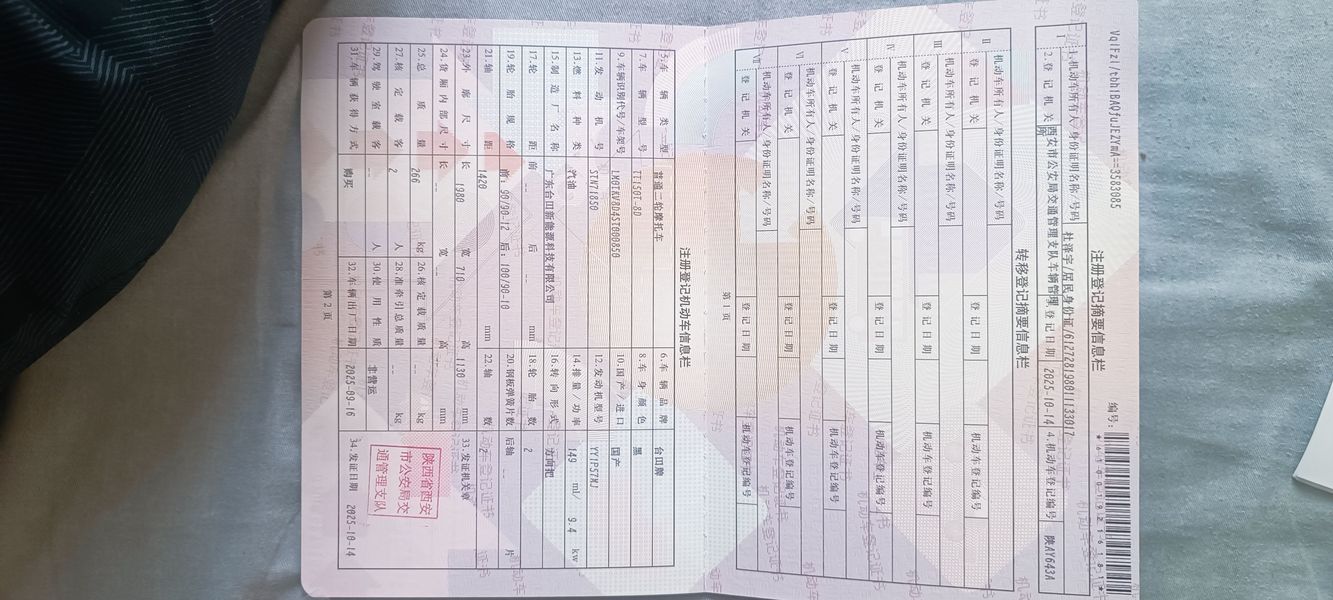 VqlFzl/tbh1BAQfuJEZYmA==3583085
编号:
注册登记摘要信息栏
I
1.机动车所有人/身份证明名称/号码 杜泽宇/居民身份证/612728198011133017
2.登记机关 西安市公安局交通管理支队车辆管理所 登记日期 2025-10-14 4.机动车登记编号 陕AY643A
转移登记摘要信息栏
II 机动车所有人/身份证明名称/号码
登记机关 登记日期 机动车登记编号
III 机动车所有人/身份证明名称/号码
登记机关 登记日期 机动车登记编号
IV 机动车所有人/身份证明名称/号码
登记机关 登记日期 机动车登记编号
V 机动车所有人/身份证明名称/号码
登记机关 登记日期 机动车登记编号
VI 机动车所有人/身份证明名称/号码
登记机关 登记日期 机动车登记编号
VII 机动车所有人/身份证明名称/号码
登记机关 登记日期 机动车登记编号
第1页
注册登记机动车信息栏
5.车辆类型 普通二轮摩托车 6.车辆品牌 台田牌
7.车辆型号 TT150T-8D 8.车身颜色 黑
9.车辆识别代号/车架号 10.国产/进口 国产
11.发动机号 12.发动机型号 YY1P57MJ
13.燃料种类 汽油 14.排量/功率 149 ml/ 9.4 kw
15.制造厂名称 广东台田新能源科技有限公司 16.转向形式 方向把
17.轮距 前 -- 后 -- mm 18.轮胎数 2
19.轮胎规格 前:90/90-12 后:100/90-10 20.钢板弹簧片数 后轴 -- 片
21.轴距 1420 mm 22.轴数 2
23.外廓尺寸 长 1980 宽 710 高 1130 mm 33.发证机关章
24.货厢内部尺寸 长 -- 宽 -- 高 -- mm
25.总质量 266 kg 26.核定载质量 -- kg
27.核定载客 2 人 28.准牵引总质量 -- kg
29.驾驶室载客 -- 人 30.使用性质 非营运
31.车辆获得方式 购买 32.车辆出厂日期 2025-09-16 34.发证日期 2025-10-14
陕西省西安
市公安局交
通管理支队
第2页